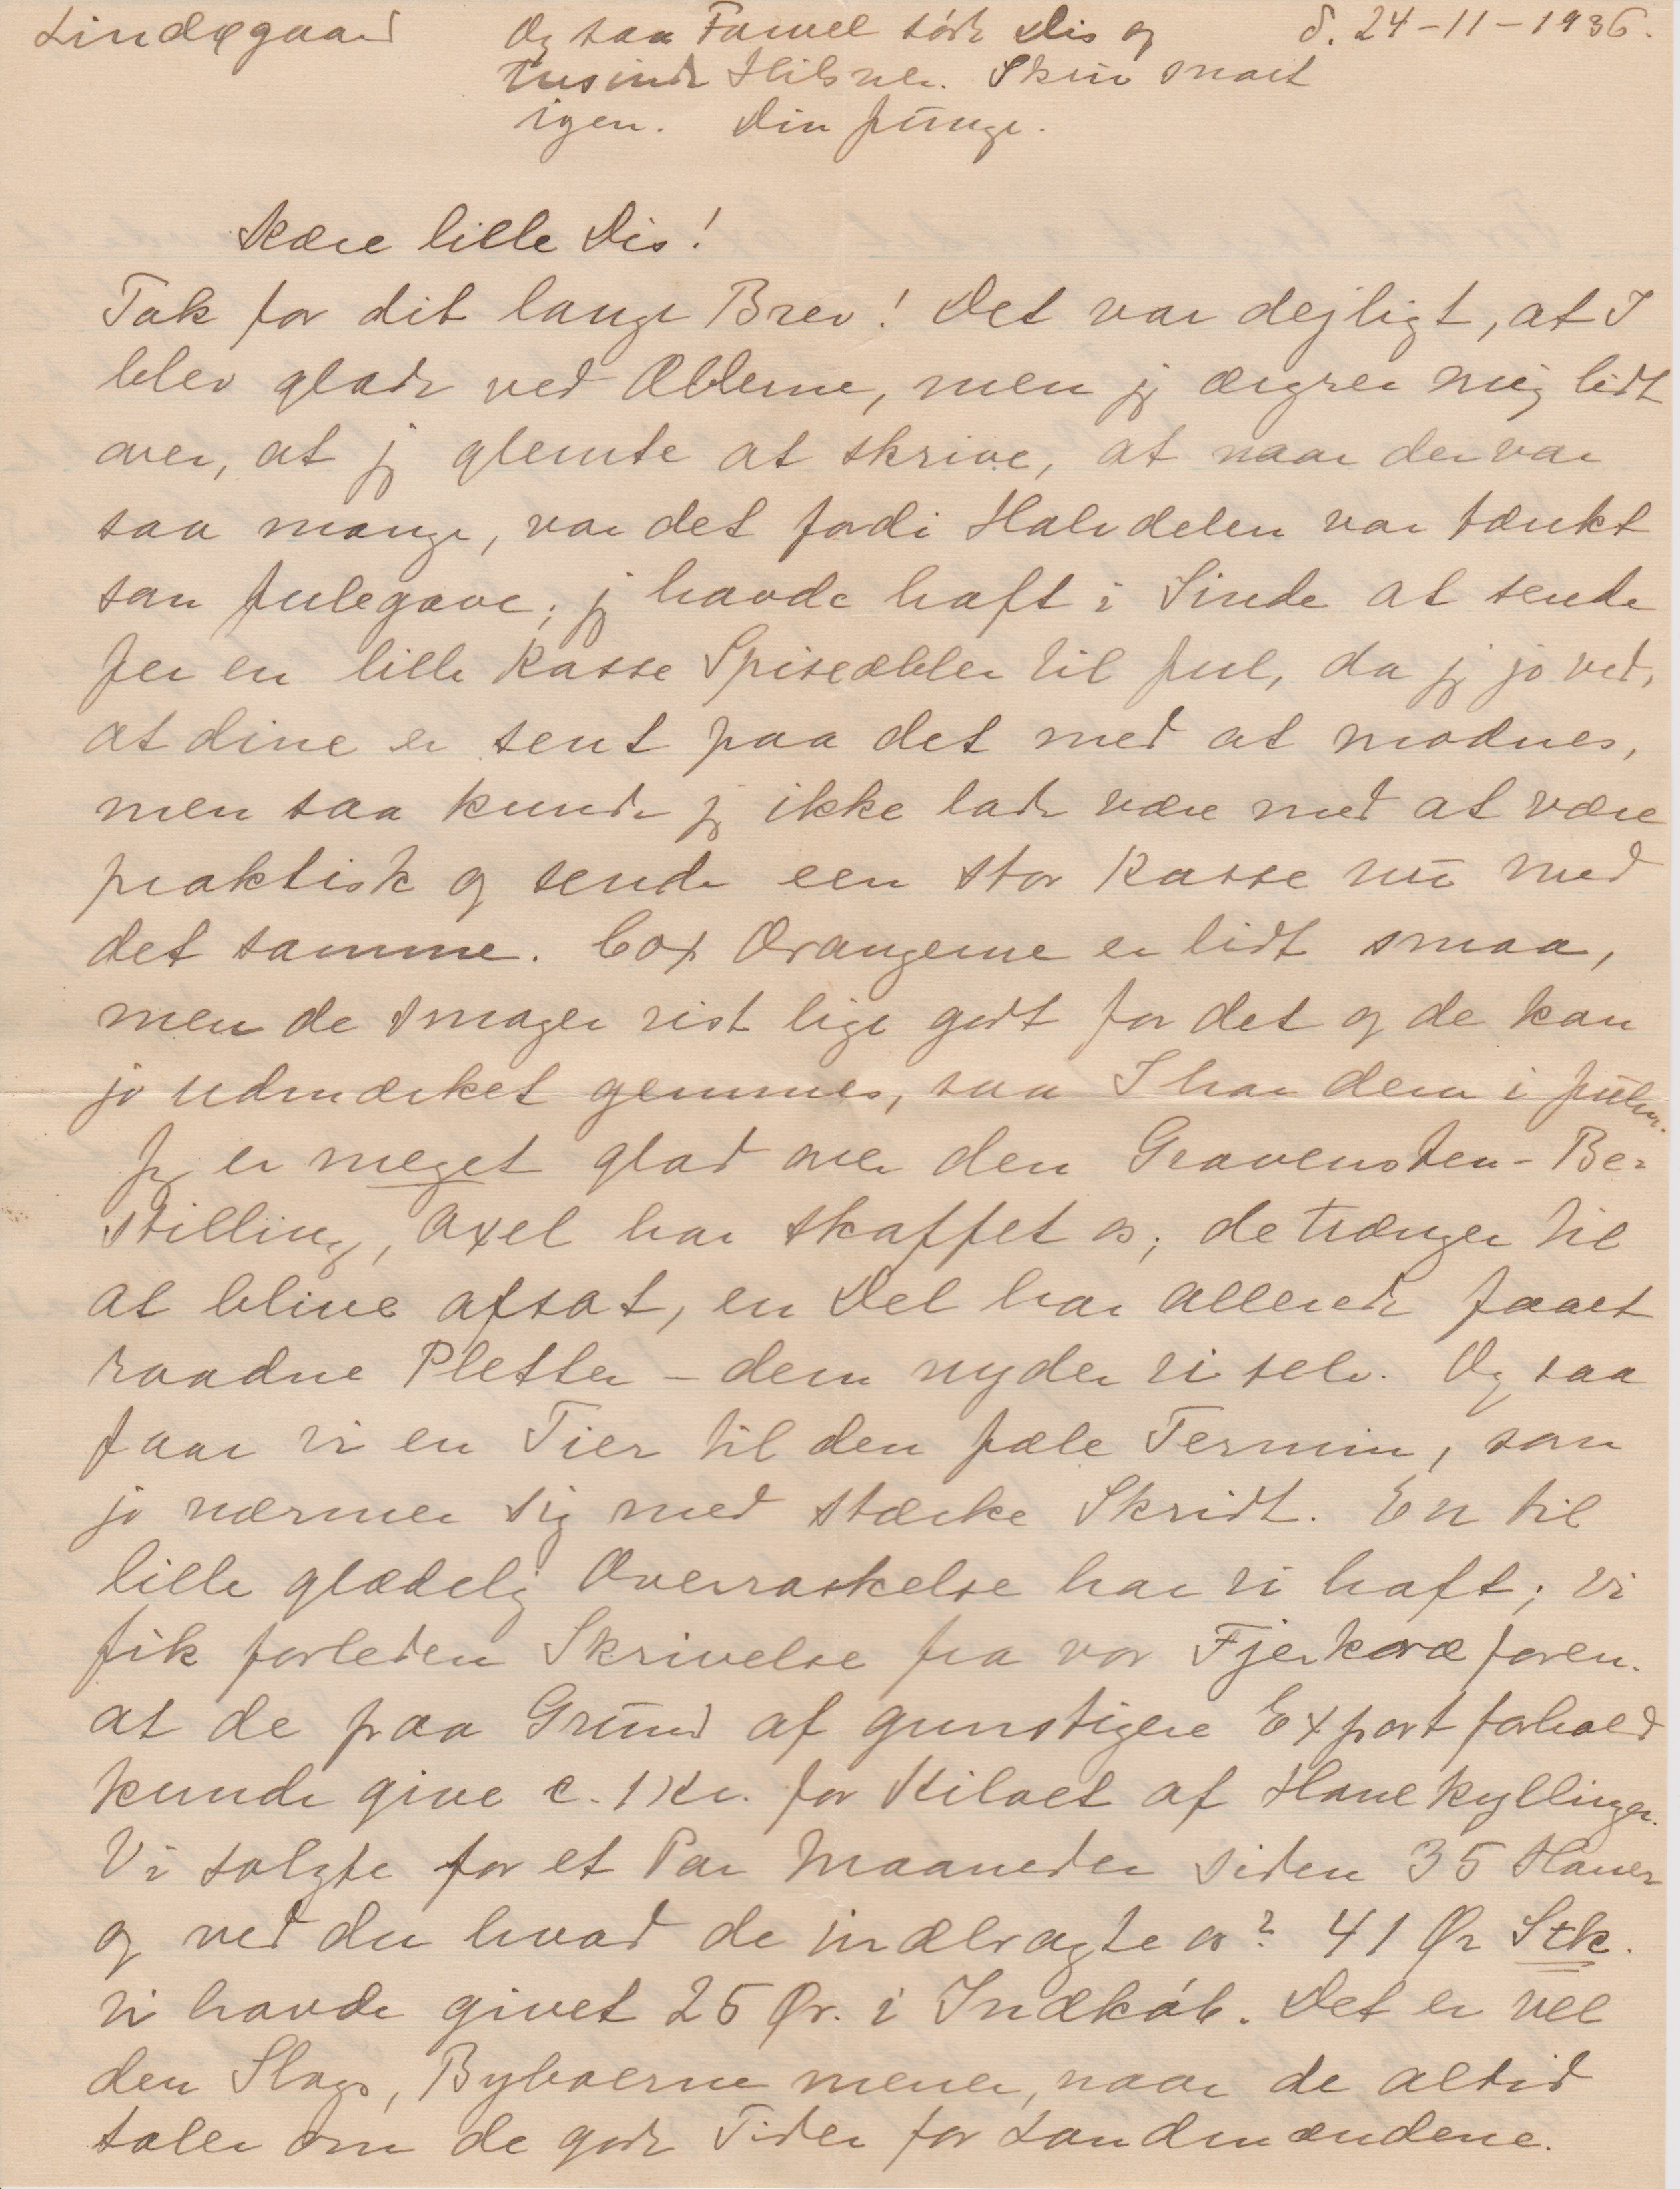 Lindøgaard
d. 24-11-1936.
Og saa Farvel søde Dis og
tusinde Hilsner. Skriv snart
igen. Din Junge.
Kære lille Dis!
Tak for dit lange Brev! Det var dejligt, at I
blev glade ved Æblerne, men jeg ærgrer mig lidt
over, at jeg glemte at skrive, at naar der var
saa mange, var det fordi Halvdelen var tænkt
som Julegave; jeg havde haft i Sinde at sende
Jer en lille Kasse Spiseæbler til Jul, da jeg jo ved,
at dine er sent paa det med at modnes,
men saa kunde jeg ikke lade være med at være
praktisk og sende een stor Kasse nu med
det samme. Cox Orangerne er lidt smaa,
men de smager vist lige godt for det og de kan
jo udmærket gemmes, saa I har dem i Julen.
Jeg er meget glad over den Gravensten-Be-
stilling, Axel har skaffet os; de trænger til
at blive afsat, en Del har allerede faaet
raadne Pletter – dem nyder vi selv. Og saa
faar vi en Tier til den fæle Termin, som
jo nærmer sig med stærke Skridt. En til
lille glædelig Overraskelse har vi haft; vi
fik forleden Skrivelse fra vor Fjerkræforen.
at de paa Grund af gunstigere Exportforhold
kunde give c. 1 Kr. for Kiloet af Hanekyllinger.
Vi solgte for et Par Maaneder siden 35 Haner
og ved du hvad de indbragte os? 41 Ør Stk.
vi havde givet 25 Ør. i Indkøb. Det er vel
den Slags, Byboerne mener, naar de altid
taler om de gode Tider for Landmændene.